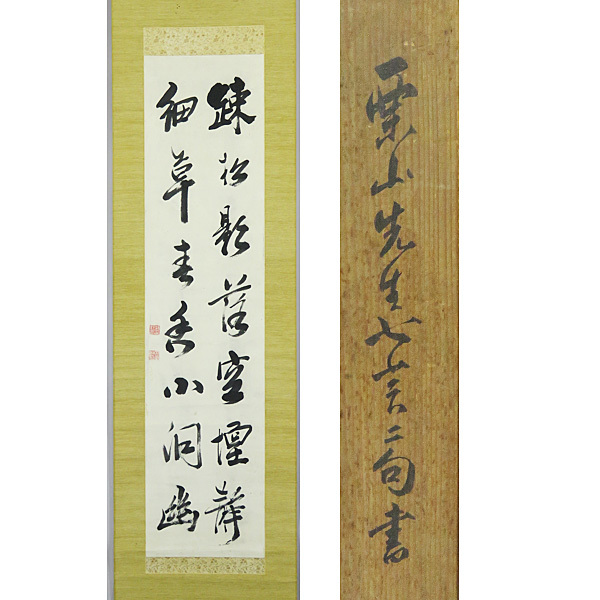 疎松影落空壇静
細草春香小洞幽
栗山先生七言二句書